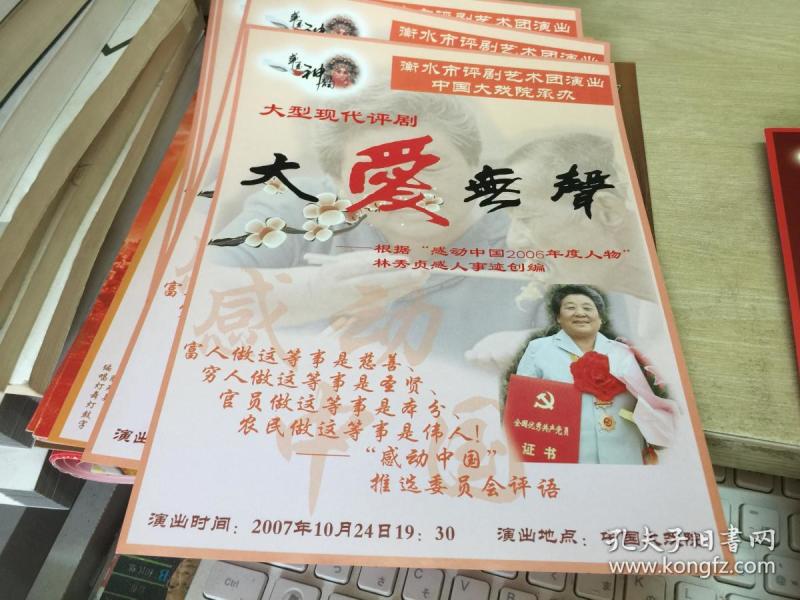 评剧艺术团演出
衡水市评剧艺术团演出
衡水市评剧艺术团演出
中国大戏院承办
大型现代评剧
大愛無聲
——根据“感动中国2006年度人物”
林秀贞感人事迹创编
感动
中国
富人做这等事是慈善、
穷人做这等事是圣贤、
官员做这等事是本分、
农民做这等事是伟人！
——“感动中国”
推选委员会评语
全国优秀共产党员
证书
演出时间：2007年10月24日19：30
演出地点：中国大戏院
富
演出
孔夫子旧书网
www.kongfz.com